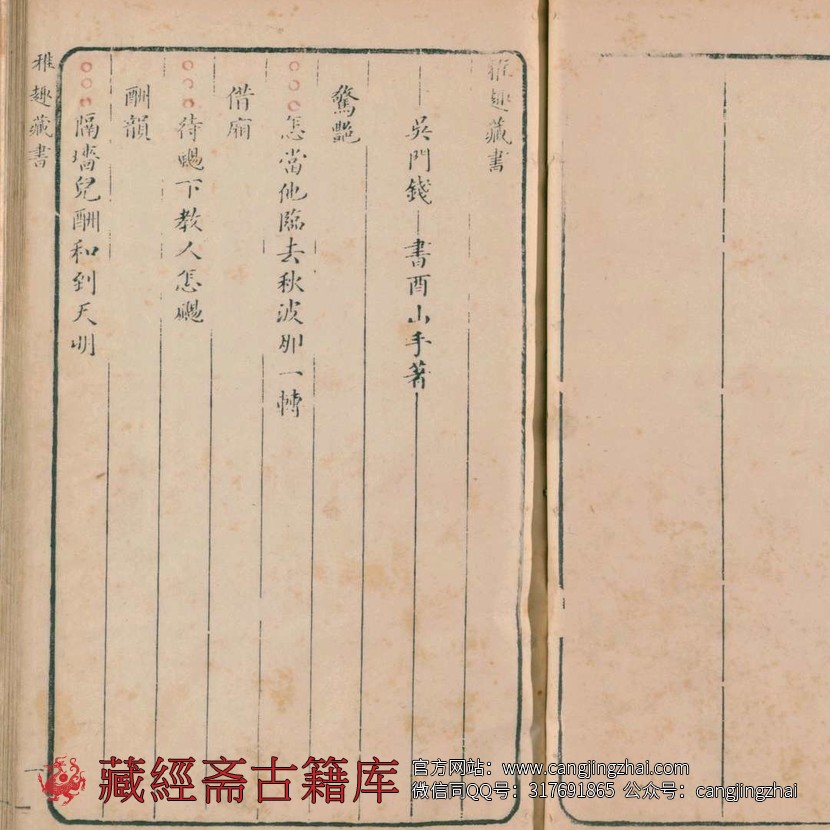 雅趣藏書
吳門錢 書酉山手著
驚艷
怎當他臨去秋波那一轉
借廂
待颺下教人怎颺
酬韻
隔墻兒酬和到天明
雅趣藏書
藏經斋古籍库
官方网站：www.cangjingzhai.com
微信同QQ号：317691865 公众号：cangjingzhai